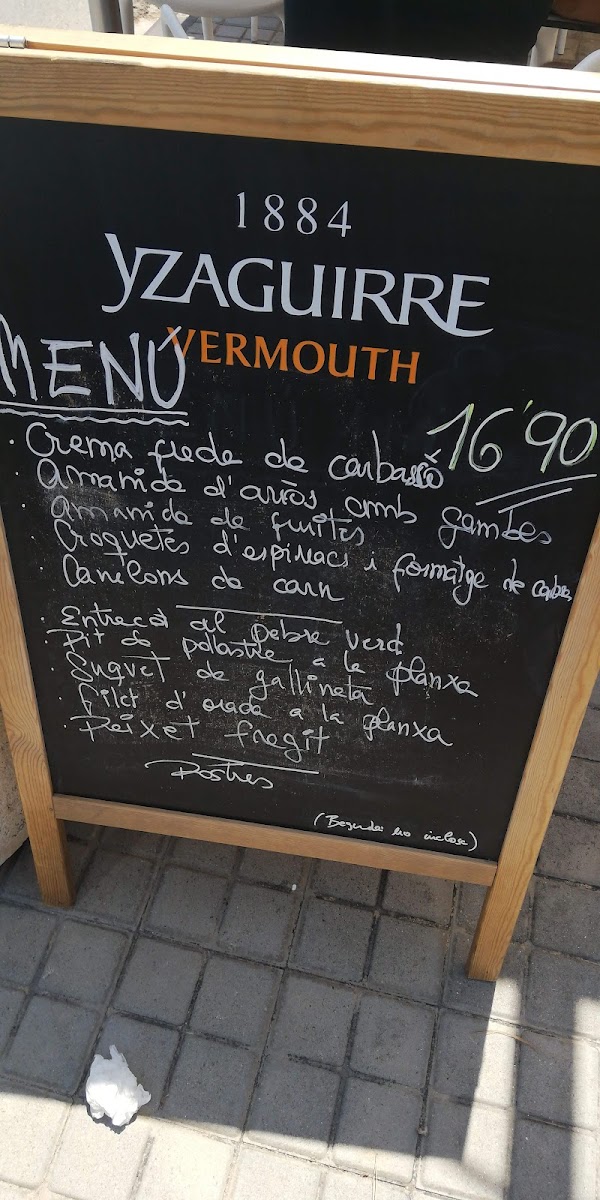 1884
YZAGUIRRE
VERMOUTH
MENÚ
16'90
· Crema freda de carbassó
· Amanida d'arròs amb gambes
· Amanida de fruites
· Croquetes d'espinacs i formatge de cabra
· Canelons de carn
· Entrecot al pebre verd
· Pit de pollastre a la planxa
· Suquet de gallineta
· Filet d'orada a la planxa
· Peixet fregit
Postres
(Beguda no inclosa)